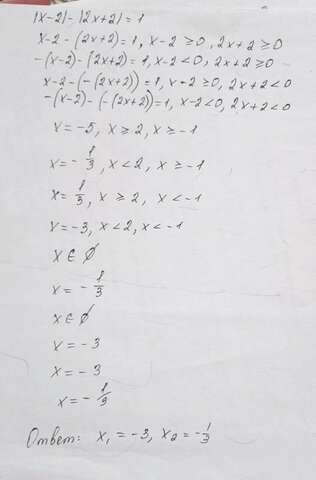 |x-2| - |2x+2| = 1
x-2 - (2x+2) = 1, x-2 ≥ 0, 2x+2 ≥ 0
-(x-2) - (2x+2) = 1, x-2 < 0, 2x+2 ≥ 0
x-2 - (-(2x+2)) = 1, x-2 ≥ 0, 2x+2 < 0
-(x-2) - (-(2x+2)) = 1, x-2 < 0, 2x+2 < 0
x = -5, x ≥ 2, x ≥ -1
x = -1/3, x < 2, x ≥ -1
x = 1/3, x ≥ 2, x < -1
x = -3, x < 2, x < -1
x ∈ ∅
x = -1/3
x ∈ ∅
x = -3
x = -3
x = -1/3
Ответ: x₁ = -3, x₂ = -1/3